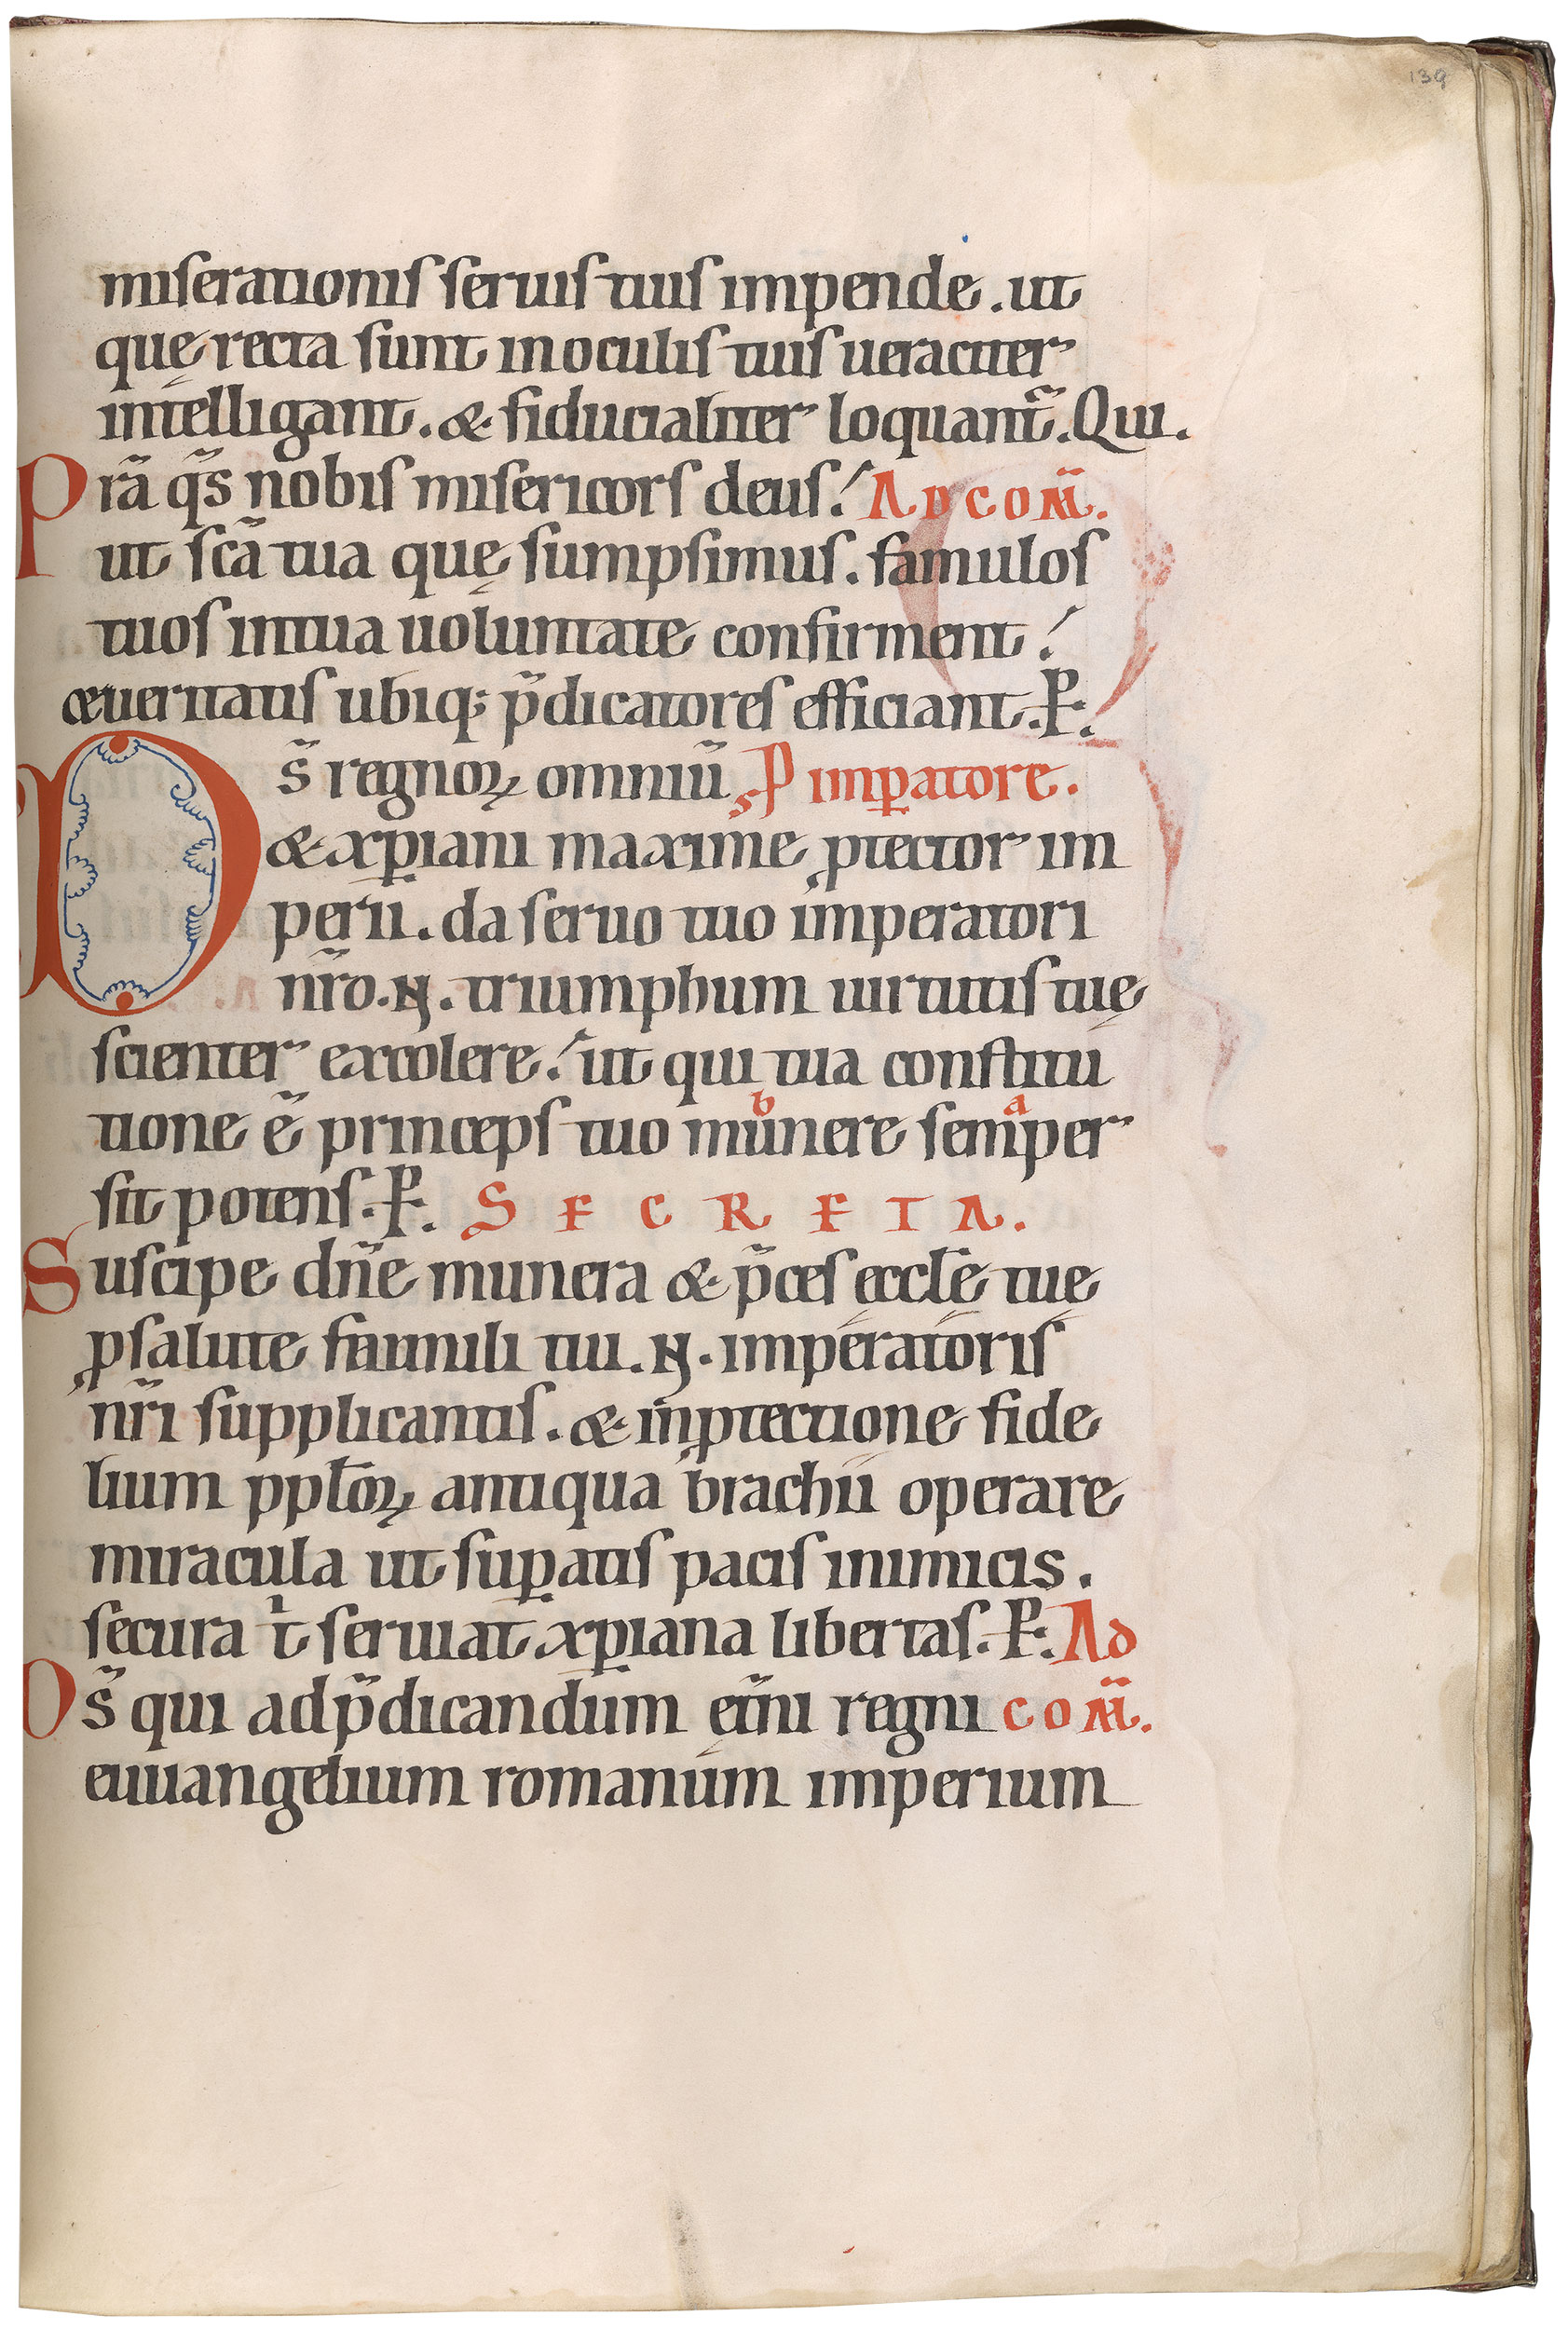 139
miserationis seruis tuis impende. ut
quę recta sunt in oculis tuis ueraciter
intelligant. & fiducialiter loquant᷑. Qui.
Prā q̄s nobis misericors deus! AD COM̄.
ut scā tua quę sumpsimus. famulos
tuos in tua uoluntate confirment!
& ueritatis ubiq; p̄dicatores efficiant. P.
Ds̄ regnoꝝ omniū ꝓ imꝑatore.
& xp̄iani maxime ꝓtector im
perii. da seruo tuo imperatori
nr̄o. N. triumphum uirtutis tuę
scienter excolere! ut qui tua constitu
tione ē princeps tuo munere b semper a
sit potens. P. SECRETA.
Suscipe dn̄e munera & p̄ces eccl̄e tuę
ꝓ salute famuli tui. N. imperatoris
nr̄i supplicantis. & in ꝓtectione fide
lium pplōꝝ antiqua brachii operare
miracula ut suꝑatis pacis inimicis.
secura t̾ seruiat xp̄iana libertas. P. Ad
Ds̄ qui ad p̄dicandum et̄ni regni COM̄.
euuangelium romanum imperium